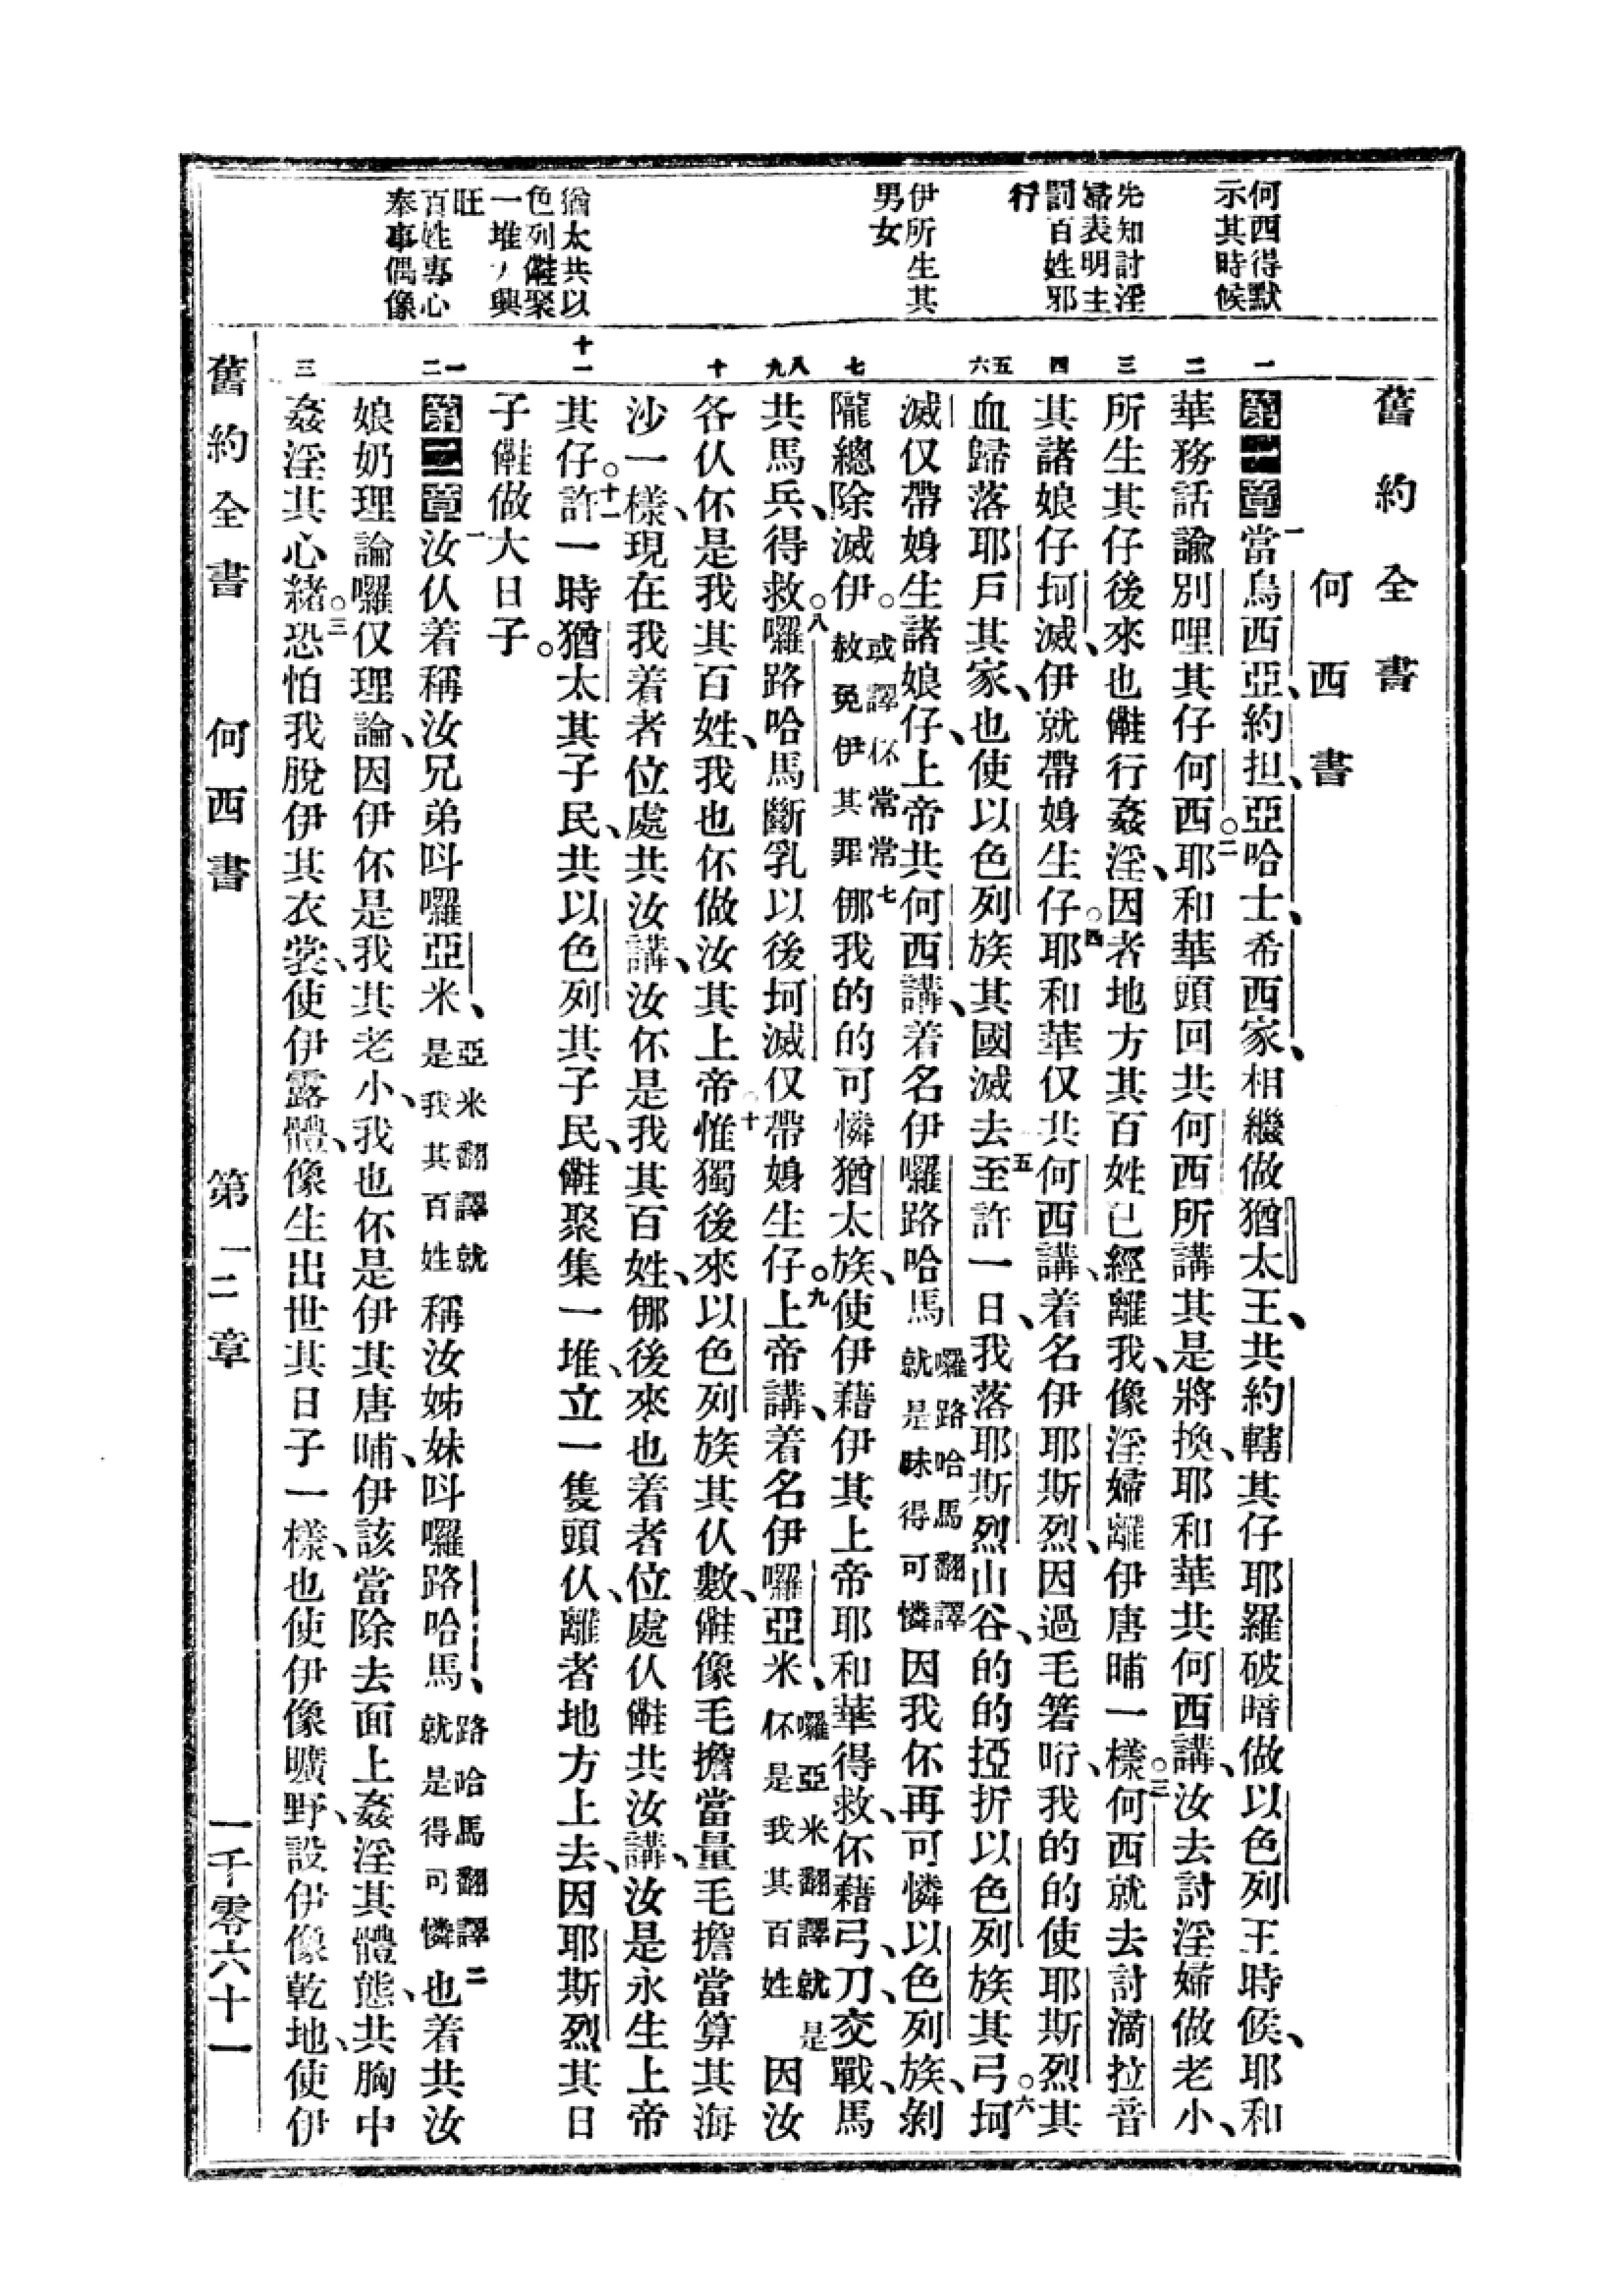 舊約全書
何西書
何西得默
示其時候
先知討淫
婦表明主
罰百姓邪
行
伊所生其
男女
猶太共以
色列𣍐聚
一堆大興
旺
百姓專心
奉事偶像
一
二
三
四
五
六
七
八
九
十
十一
一
二
三
第一章 一當烏西亞、約担、亞哈士、希西家、相繼做猶太王、共約轄其仔耶羅破暗做以色列王時候、耶和
華務話諭別哩其仔何西。二耶和華頭回共何西所講其是將換、耶和華共何西講、汝去討淫婦做老小、
所生其仔後來也𣍐行姦淫、因者地方其百姓已經離我、像淫婦離伊唐晡一樣。三何西就去討滴拉音
其諸娘仔坷滅、伊就帶娠生仔。四耶和華仅共何西講、着名伊耶斯烈、因過毛箬哘、我的的使耶斯烈其
血歸落耶戶其家、也使以色列族其國滅去。五至許一日、我落耶斯烈山谷、的的挜折以色列族其弓。六坷
滅仅帶娠生諸娘仔、上帝共何西講、着名伊囉路哈馬 囉路哈馬翻譯就是昧得可憐 因我伓再可憐以色列族、剝
隴總除滅伊。 或譯伓常常赦免伊其罪 七㑚我的的可憐猶太族、使伊藉伊其上帝耶和華得救、伓藉弓、刀、交戰、馬
共馬兵、得救。八囉路哈馬斷乳以後坷滅仅帶娠生仔。九上帝講、着名伊囉亞米、 囉亞米翻譯就是伓是我其百姓 因汝
各仈伓是我其百姓、我也伓做汝其上帝。十惟獨後來以色列族其仈數、𣍐像毛擔當量毛擔當算其海
沙一樣、現在我着者位處共汝講、汝伓是我其百姓、㑚後來也着者位處仈𣍐共汝講、汝是永生上帝
其仔。十一許一時猶太其子民、共以色列其子民、𣍐聚集一堆、立一隻頭仈、離者地方上去、因耶斯烈其日
子𣍐做大日子。
第二章 一汝仈着稱汝兄弟呌囉亞米、 亞米翻譯就是我其百姓 稱汝姊妹呌囉路哈馬、 路哈馬翻譯就是得可憐 二也着共汝
娘奶理論囉仅理論、因伊伓是我其老小、我也伓是伊其唐晡、伊該當除去面上姦淫其體態、共胸中
姦淫其心緒。三恐怕我脫伊其衣裳、使伊露體、像生出世其日子一樣、也使伊像曠野、設伊像乾地、使伊
舊約全書 何西書 第一二章 一千零六十一